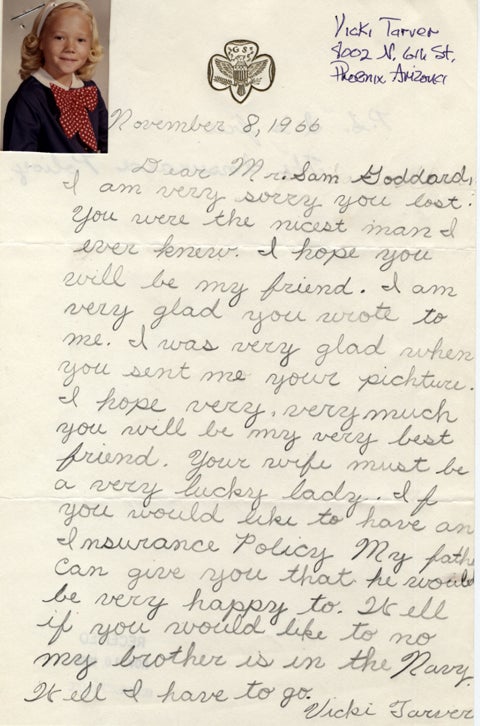 Vicki Tarver
4002 N. 6th St,
Phoenix Arizona
GS
November 8, 1966
Dear Mr. Sam Goddard,
I am very sorry you lost.
You were the nicest man I
ever knew. I hope you
will be my friend. I am
very glad you wrote to
me. I was very glad when
you sent me your pichture.
I hope very, very much
you will be my very best
friend. Your wife must be
a very lucky lady. If
you would like to have an
Insurance Policy My fathe
can give you that he would
be very happy to. Well
if you would like to no
my brother is in the Navy.
Well I have to go.
Vicki Tarver